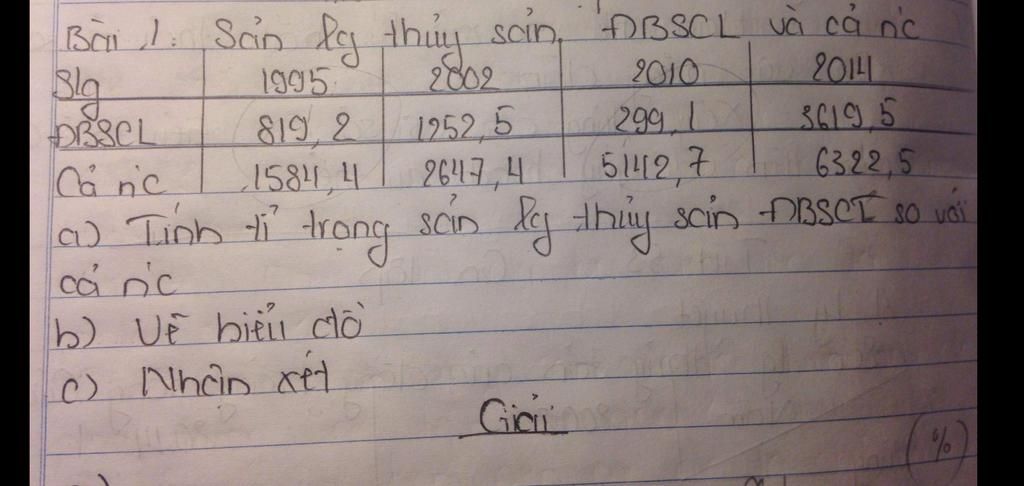 Bài 1: Sản lg thủy sản ĐBSCL và cả n'c
Slg 1995 2002 2010 2014
ĐBSCL 819,2 1252,5 299,1 3619,5
Cả n'c 1584,4 2647,4 5142,7 6322,5
a) Tính tỉ trọng sản lg thủy sản ĐBSCL so với
cả n'c
b) Vẽ biểu đồ
c) Nhận xét
Giải
(%)